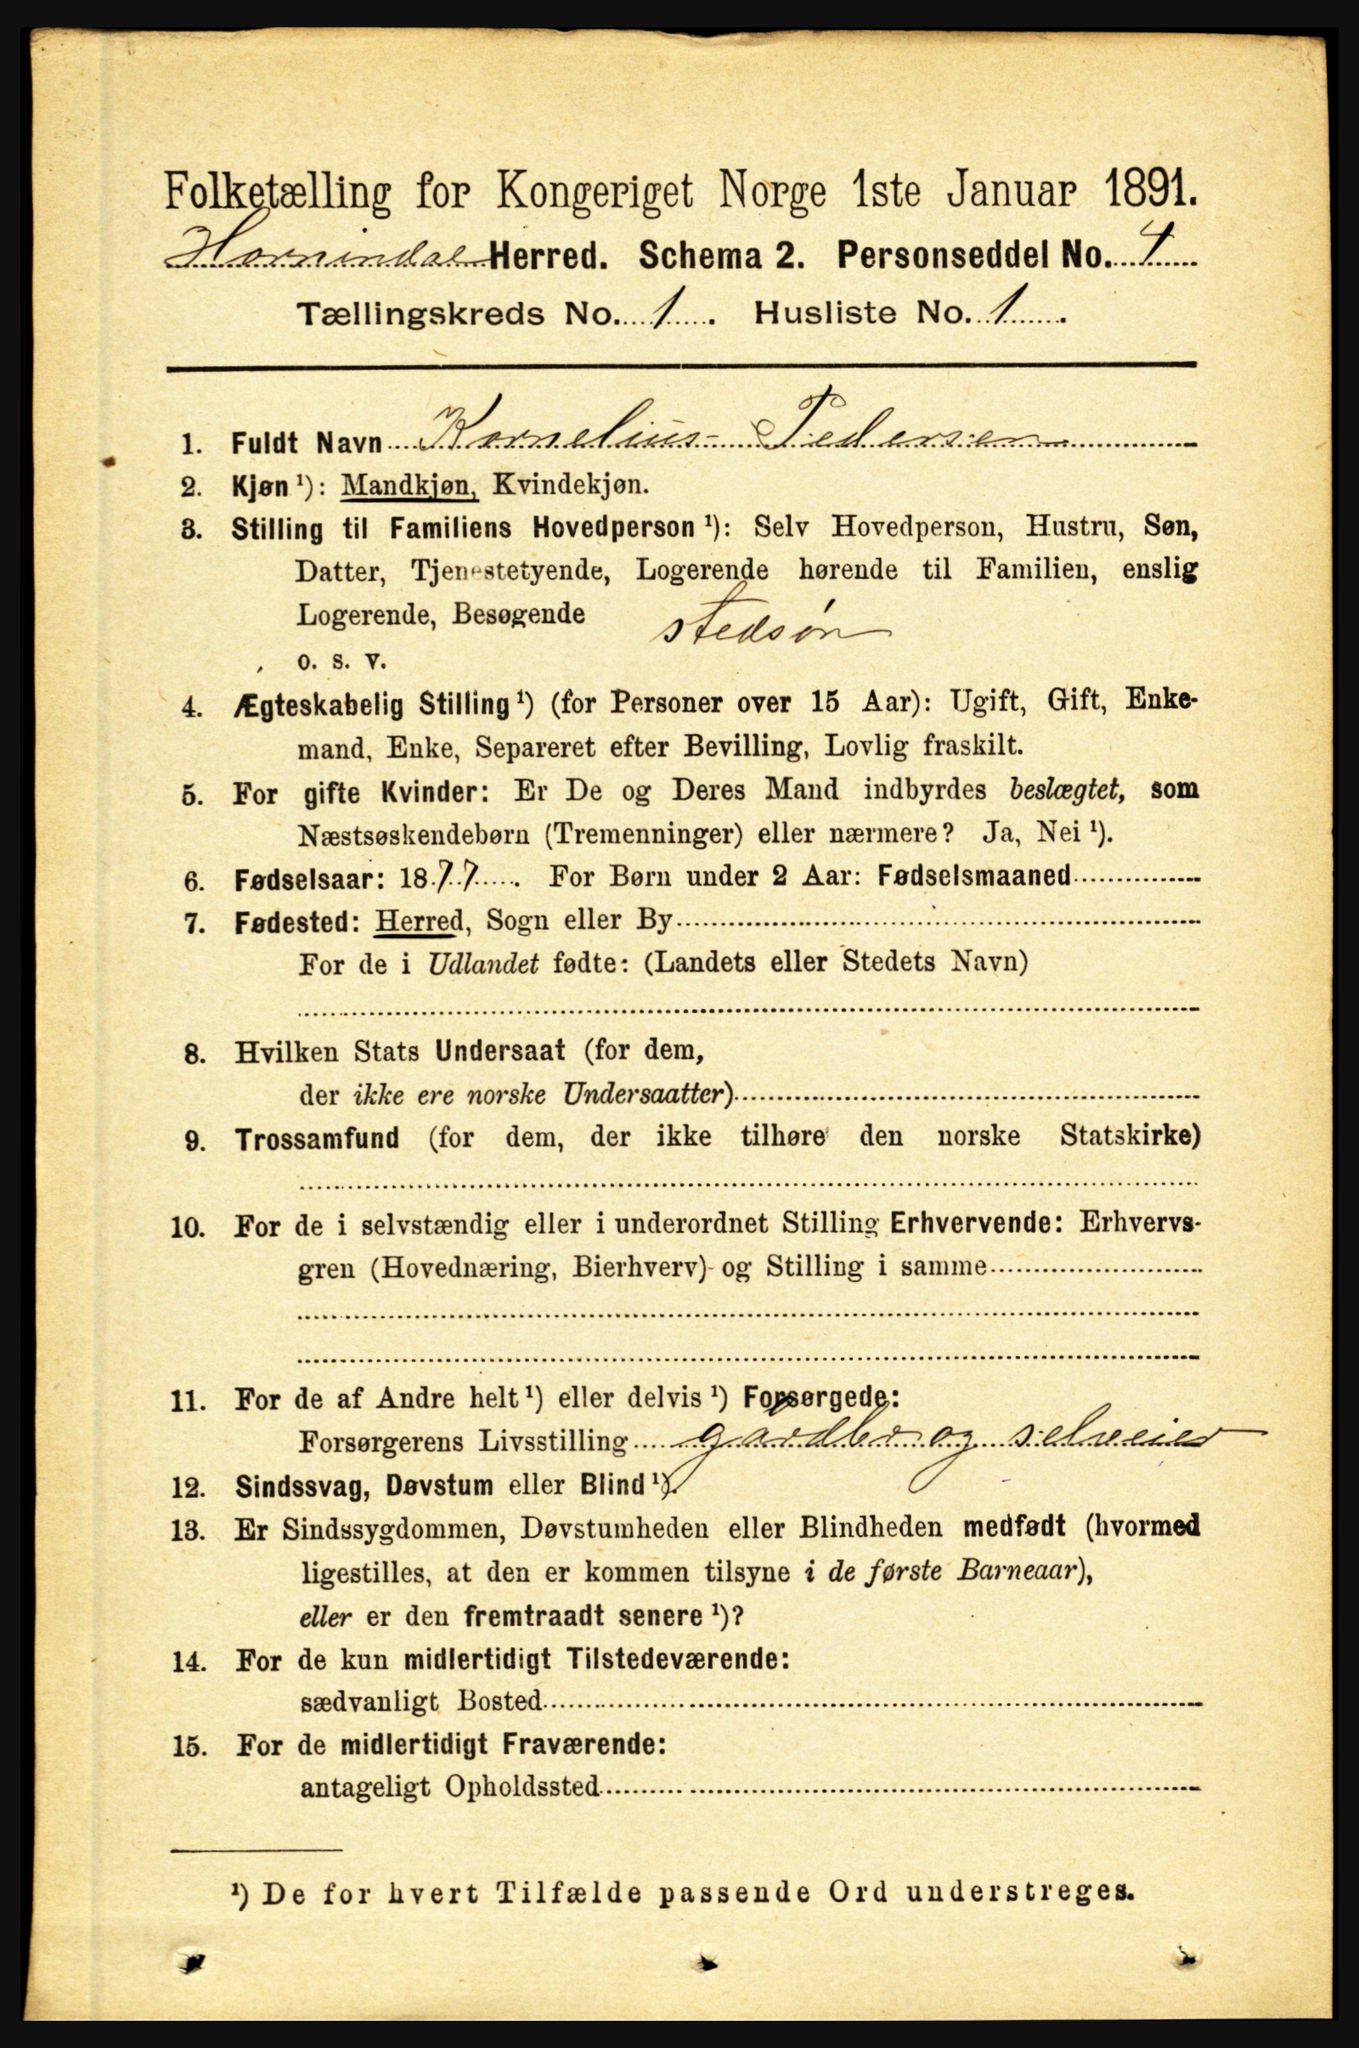 Folketælling for Kongeriget Norge 1ste Januar 1891.
Hornindal Herred. Schema 2. Personseddel No. 4
Tællingskreds No. 1. Husliste No. 1.
1. Fuldt Navn Kornelius Pedersen
2. Kjøn ¹): Mandkjøn, Kvindekjøn.
3. Stilling til Familiens Hovedperson ¹): Selv Hovedperson, Hustru, Søn,
Datter, Tjenestetyende, Logerende hørende til Familien, enslig
Logerende, Besøgende stedsøn
o. s. v.
4. Ægteskabelig Stilling ¹) (for Personer over 15 Aar): Ugift, Gift, Enke-
mand, Enke, Separeret efter Bevilling, Lovlig fraskilt.
5. For gifte Kvinder: Er De og Deres Mand indbyrdes beslægtet, som
Næstsøskendebørn (Tremenninger) eller nærmere? Ja, Nei ¹).
6. Fødselsaar: 1877. For Børn under 2 Aar: Fødselsmaaned
7. Fødested: Herred, Sogn eller By
For de i Udlandet fødte: (Landets eller Stedets Navn)
8. Hvilken Stats Undersaat (for dem,
der ikke ere norske Undersaatter)
9. Trossamfund (for dem, der ikke tilhøre den norske Statskirke)
10. For de i selvstændig eller i underordnet Stilling Erhvervende: Erhvervs-
gren (Hovednæring, Bierhverv) og Stilling i samme
11. For de af Andre helt ¹) eller delvis ¹) Forsørgede:
Forsørgerens Livsstilling gardbr og selveier
12. Sindssvag, Døvstum eller Blind ¹).
13. Er Sindssygdommen, Døvstumheden eller Blindheden medfødt (hvormed
ligestilles, at den er kommen tilsyne i de første Barneaar),
eller er den fremtraadt senere ¹)?
14. For de kun midlertidigt Tilstedeværende:
sædvanligt Bosted
15. For de midlertidigt Fraværende:
antageligt Opholdssted
¹) De for hvert Tilfælde passende Ord understreges.